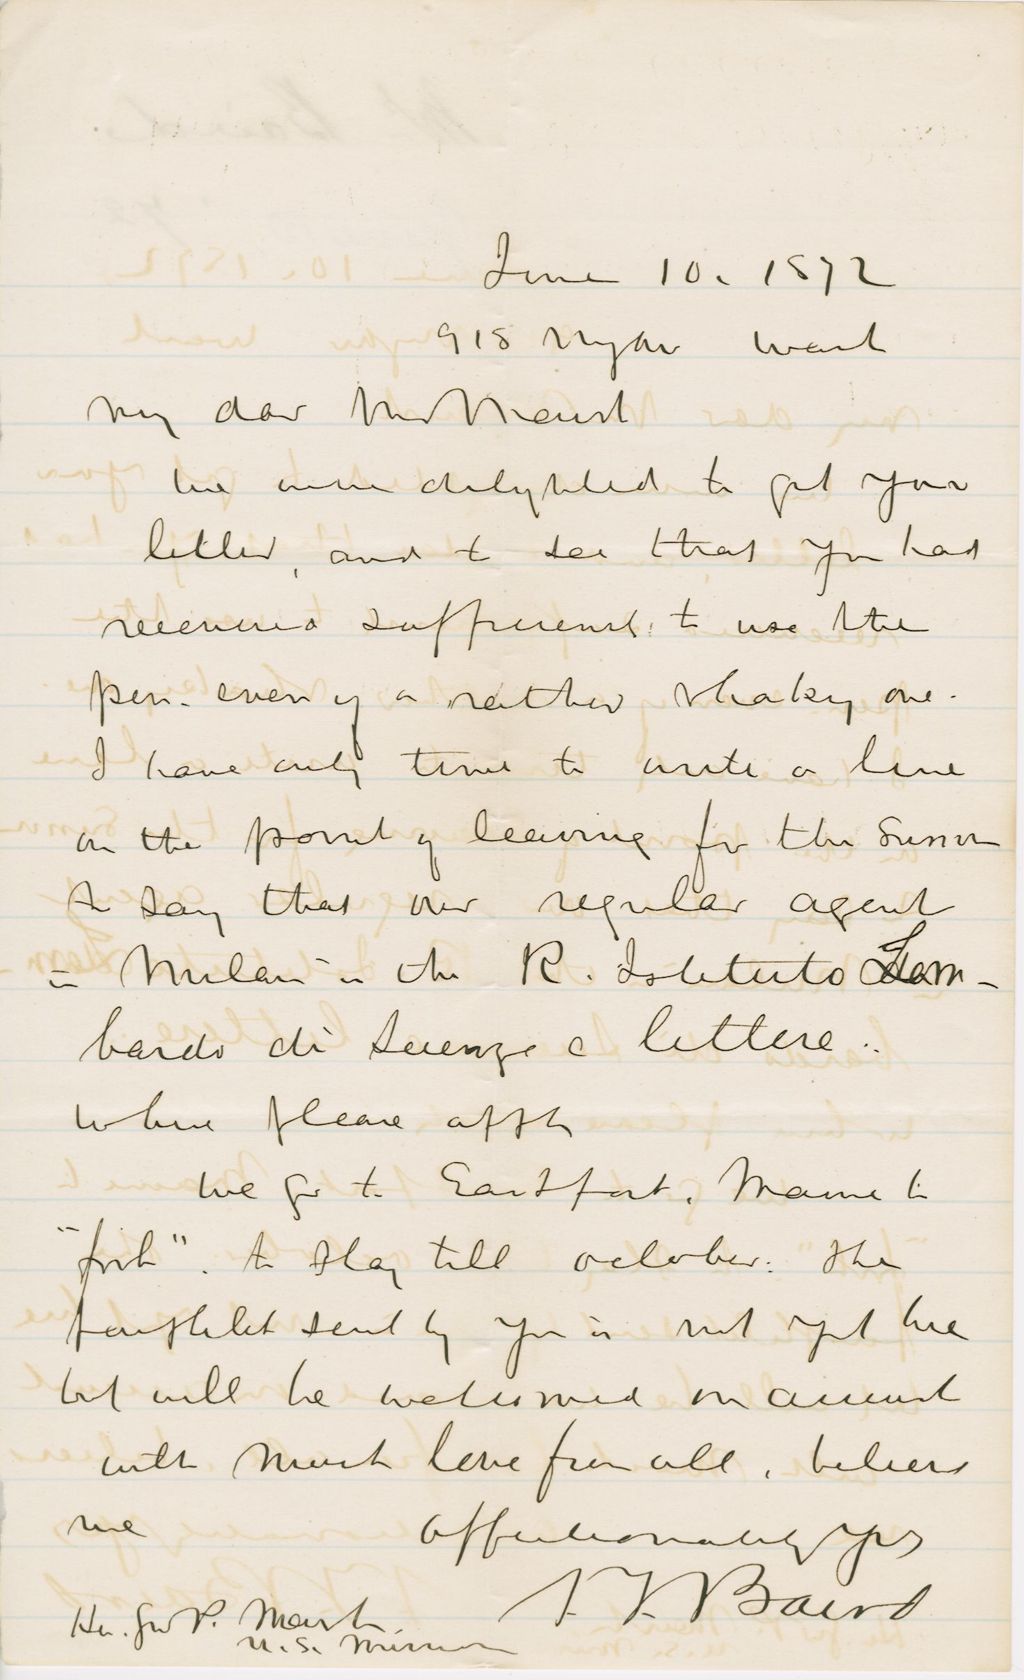 June 10. 1872
918 N York Avent
My dear Mr Marsh
We were delighted to get your
letter, and to see that you had
recovered sufficient to use the
pen. even if a rather shaky one.
I have only time to write a line
on the point of leaving for the Summer
to say that our regular agent
in Milan is the R. Istituto Lom-
bardo di Scienze e lettere.
where please apply
We go to Eastport, Maine to
"fish". to stay till October. The
pamphlet sent by you is not yet here
but will be welcomed on arrival
with much love from all, believe
me affectionately yrs
S. F. Baird
Hon. Geo P. Marsh.
U.S. Minister